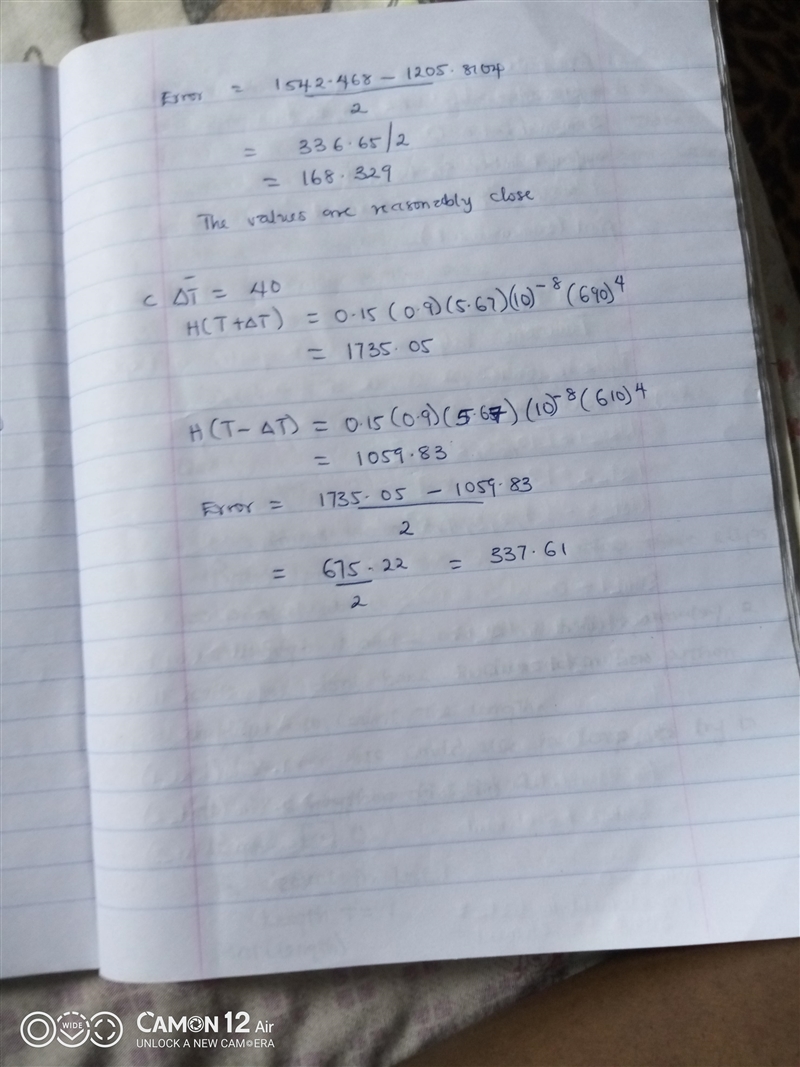 Error = 1542.468 - 1205.8104
2
= 336.65/2
= 168.329
The values are reasonably close
C ΔT̄ = 40
H(T+ΔT) = 0.15(0.9)(5.67)(10)⁻⁸(690)⁴
= 1735.05
H(T-ΔT) = 0.15(0.9)(5.67)(10)⁻⁸(610)⁴
= 1059.83
Error = 1735.05 - 1059.83
2
= 675.22 = 337.61
2
WIDE
CAMON 12 Air
UNLOCK A NEW CAMERA